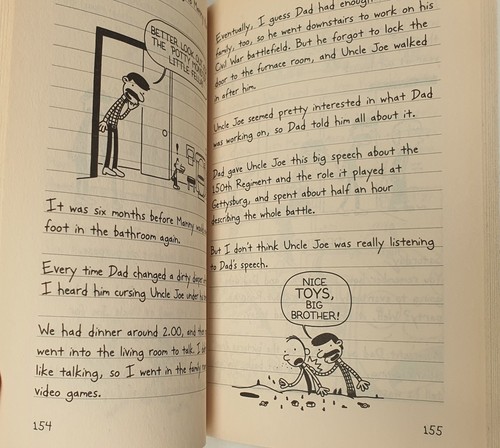 BETTER LOOK OUT
THE 'POTTY
LITTLE
It was six months before Manny
foot in the bathroom again.
Every time Dad changed a dirty
I heard him cursing Uncle Joe under
We had dinner around 2.00, and
went into the living room to talk. I
like talking, so I went in the family
video games.
154
Eventually, I guess Dad had enough
family, too, so he went downstairs to work on his
Civil War battlefield. But he forgot to lock the
door to the furnace room, and Uncle Joe walked
in after him.
Uncle Joe seemed pretty interested in what Dad
was working on, so Dad told him all about it.
Dad gave Uncle Joe this big speech about the
150th Regiment and the role it played at
Gettysburg, and spent about half an hour
describing the whole battle.
But I don't think Uncle Joe was really listening
to Dad's speech.
NICE
TOYS,
BIG
BROTHER!
155